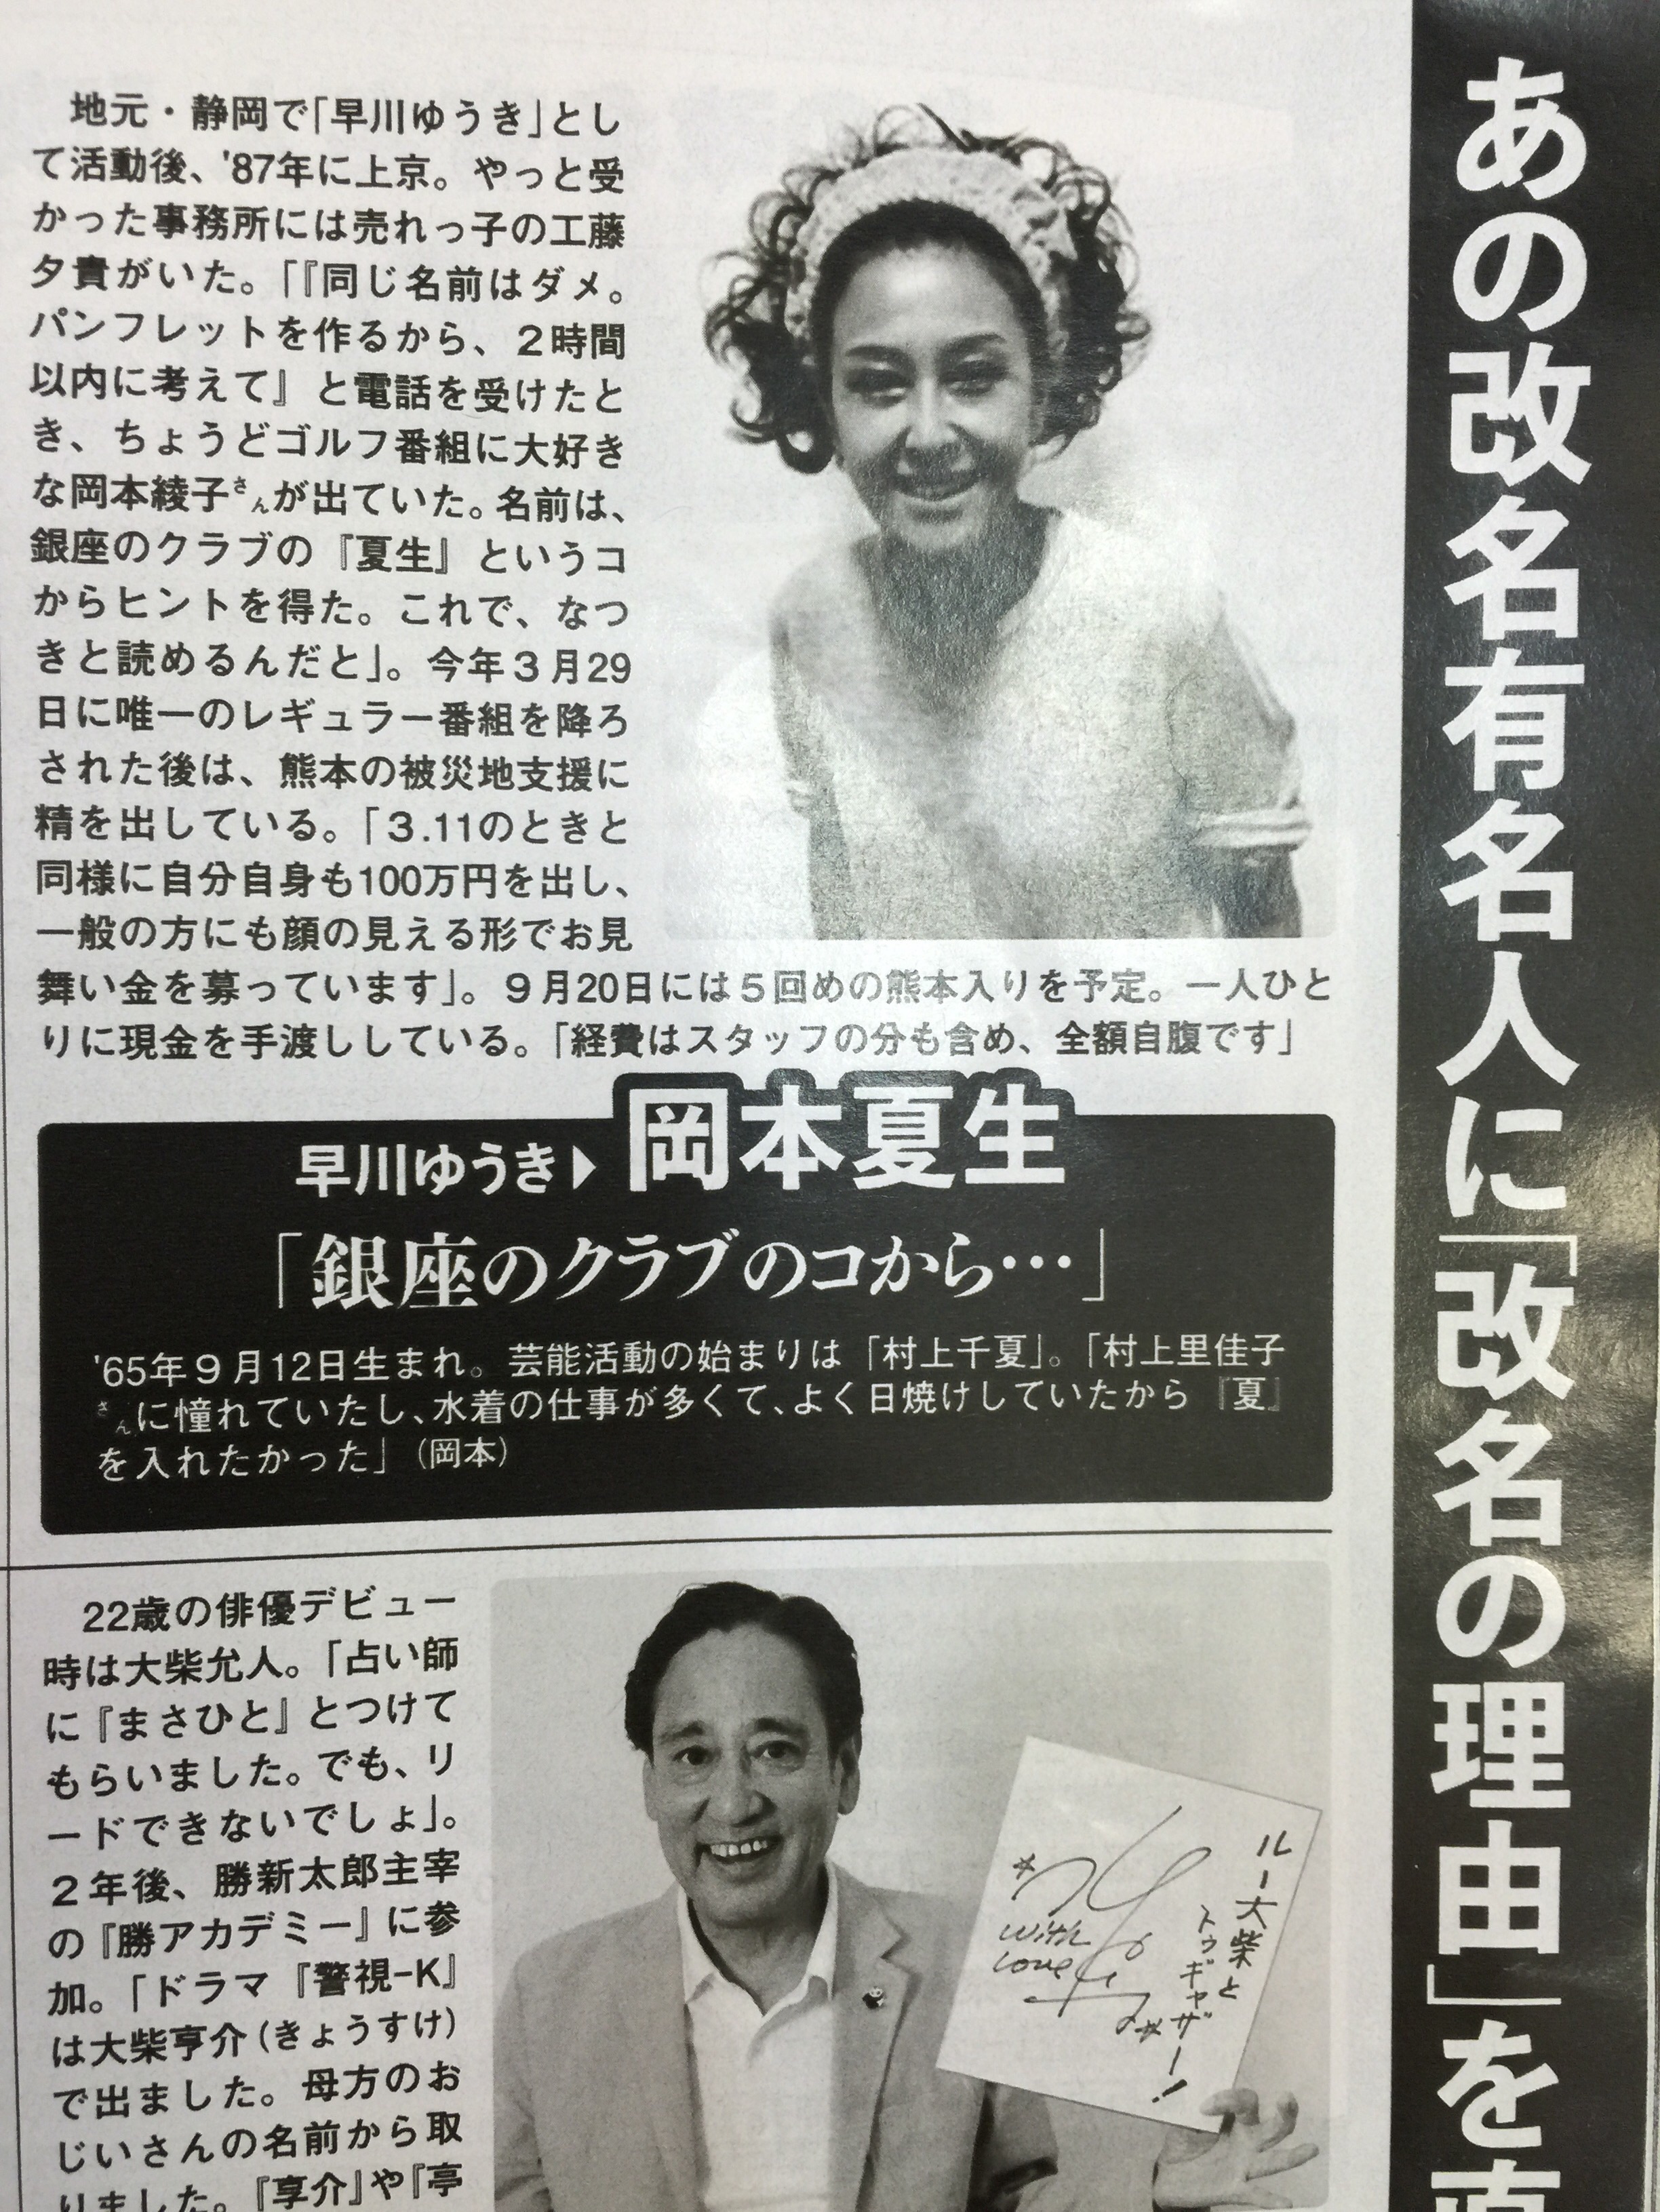 あの改名有名人に「改名の理由」を直
地元・静岡で「早川ゆうき」とし
て活動後、'87年に上京。やっと受
かった事務所には売れっ子の工藤
夕貴がいた。「『同じ名前はダメ。
パンフレットを作るから、2時間
以内に考えて』と電話を受けたと
き、ちょうどゴルフ番組に大好き
な岡本綾子さんが出ていた。名前は、
銀座のクラブの『夏生』というコ
からヒントを得た。これで、なつ
きと読めるんだと」。今年3月29
日に唯一のレギュラー番組を降ろ
された後は、熊本の被災地支援に
精を出している。「3.11のときと
同様に自分自身も100万円を出し、
一般の方にも顔の見える形でお見
舞い金を募っています」。9月20日には5回めの熊本入りを予定。一人ひと
りに現金を手渡ししている。「経費はスタッフの分も含め、全額自腹です」
早川ゆうき▶岡本夏生
「銀座のクラブのコから…」
'65年9月12日生まれ。芸能活動の始まりは「村上千夏」。「村上里佳子
さんに憧れていたし、水着の仕事が多くて、よく日焼けしていたから『夏』
を入れたかった」（岡本）
22歳の俳優デビュー
時は大柴允人。「占い師
に『まさひと』とつけて
もらいました。でも、リ
ードできないでしょ」。
2年後、勝新太郎主宰
の『勝アカデミー』に参
加。「ドラマ『警視-K』
は大柴亨介（きょうすけ）
で出ました。母方のお
じいさんの名前から取
りました。『享介』や『亭
ルー大柴と
トゥギャザー！
with
love